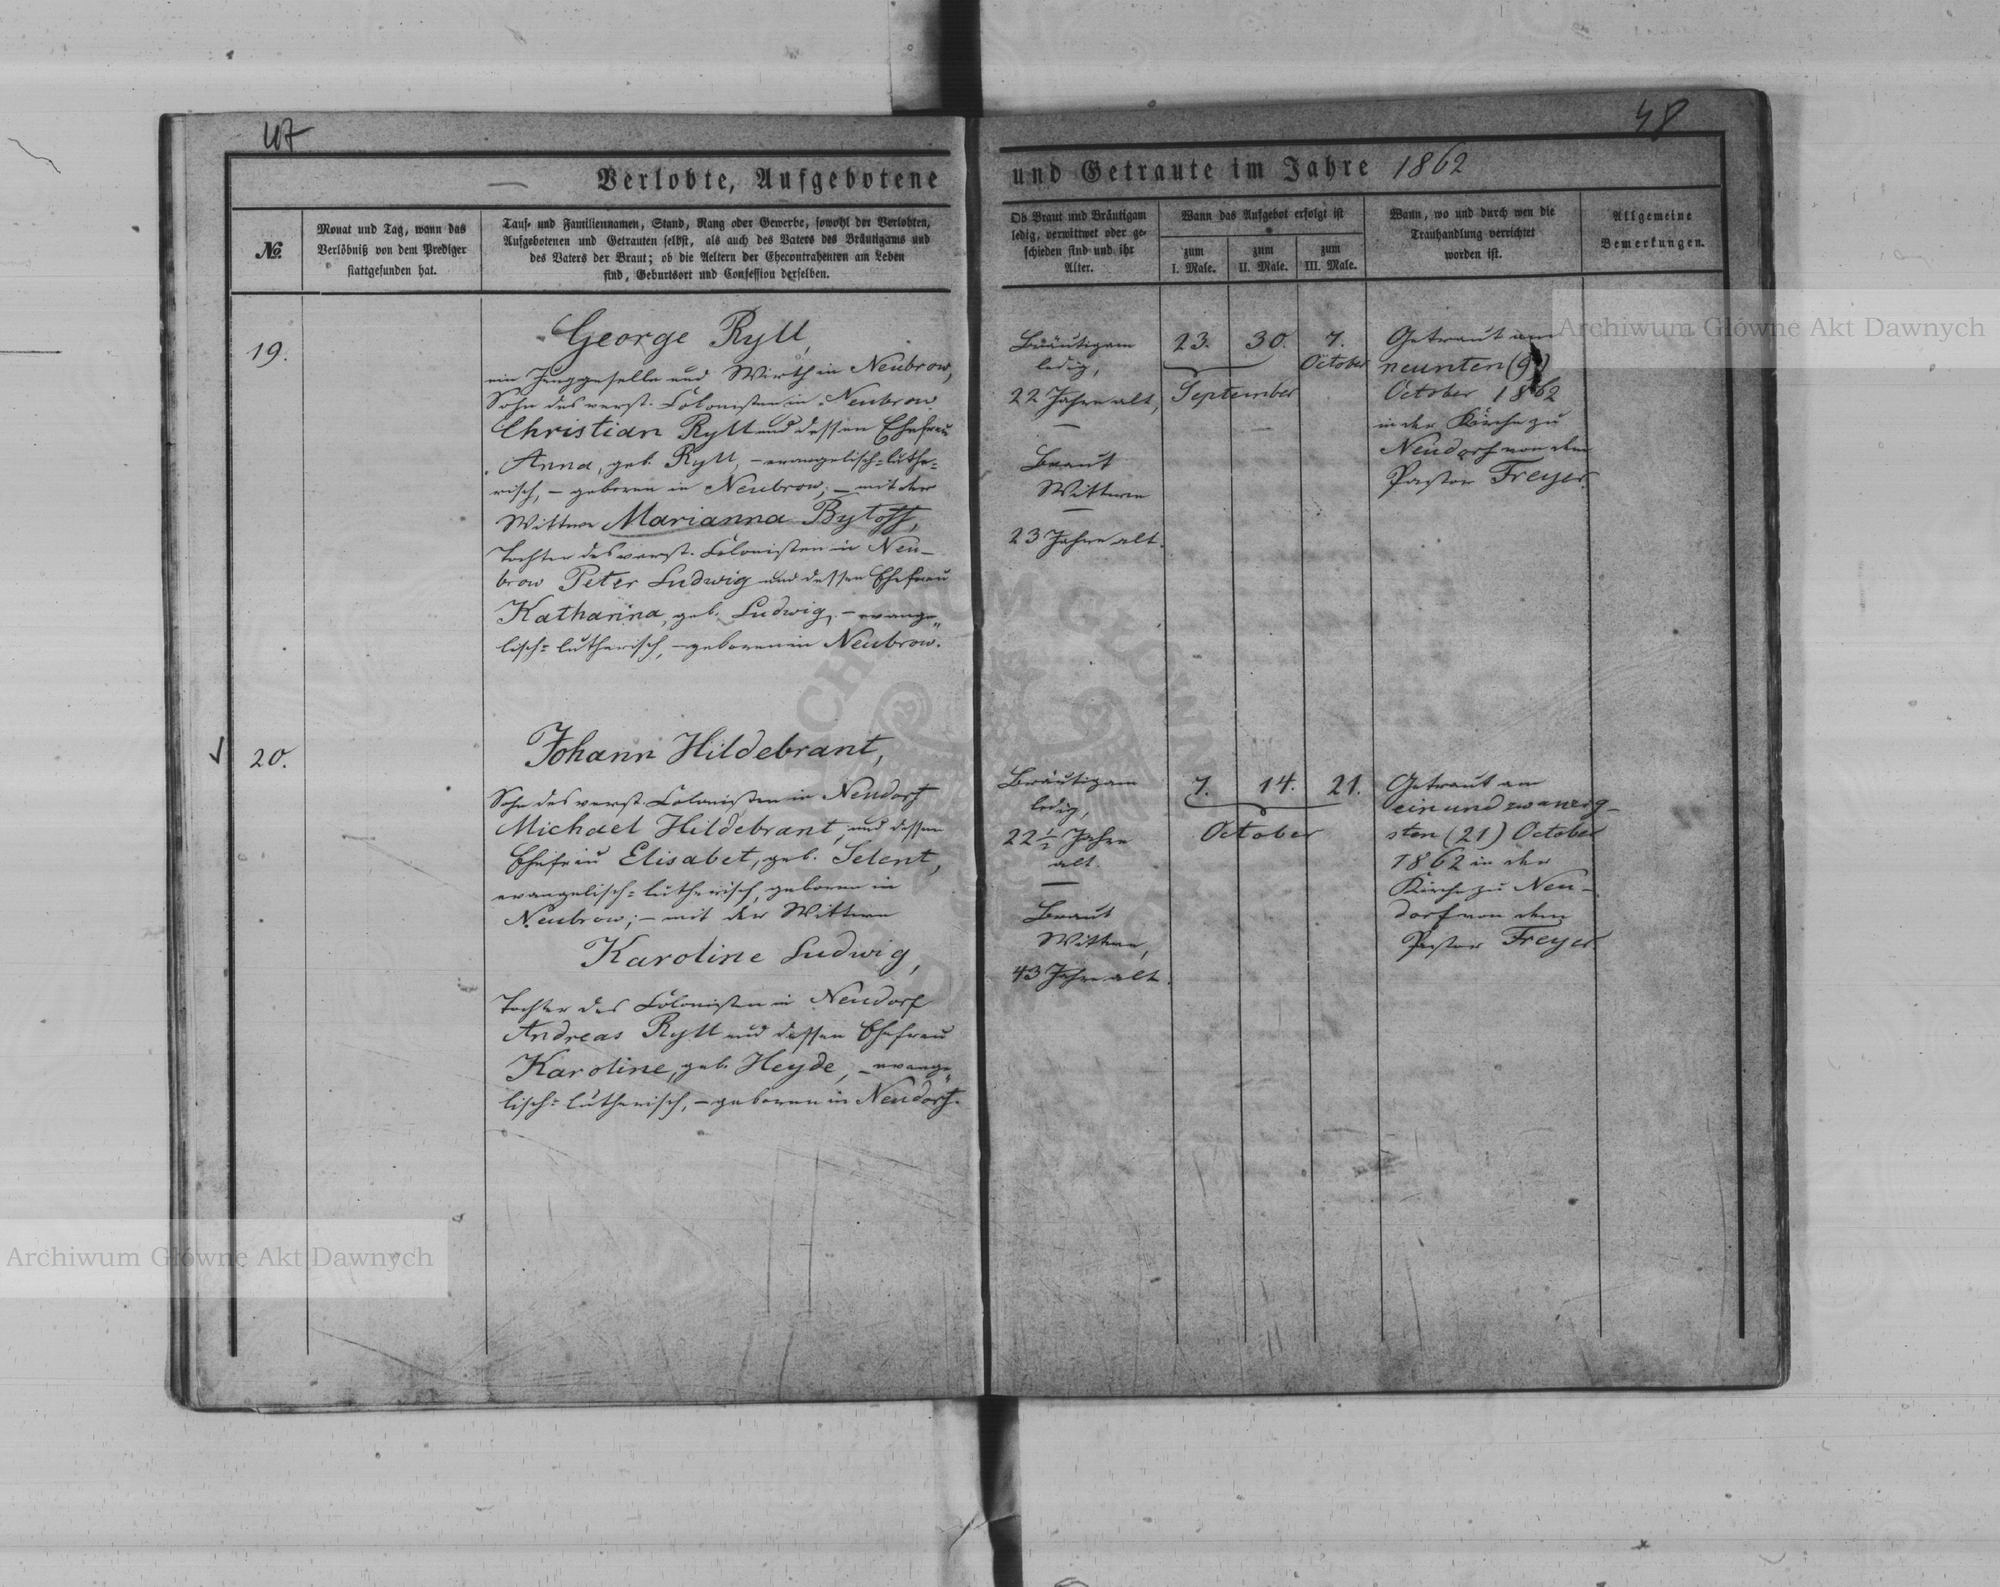 47
48
Verlobte, Aufgebotene
und Getraute im Jahre 1862
№
Monat und Tag, wann das
Verlöbniß von dem Prediger
stattgefunden hat.
Tauf- und Familiennamen, Stand, Rang oder Gewerbe, sowohl der Verlobten,
Aufgebotenen und Getrauten selbst, als auch des Vaters des Bräutigams und
des Vaters der Braut; ob die Aeltern der Ehecontrahenten am Leben
sind, Geburtsort und Confession derselben.
Ob Braut und Bräutigam
ledig, verwittwet oder ge-
schieden sind und ihr
Alter.
Wann das Aufgebot erfolgt ist
zum
I. Male.
zum
II. Male.
zum
III. Male.
Wann, wo und durch wen die
Trauhandlung verrichtet
worden ist.
Allgemeine
Bemerkungen.
19.
George Ryll,
ein Junggeselle und Wirth in Neubrow,
Sohn des verst. Colonisten in Neubrow
Christian Ryll und dessen Ehefrau
Anna, geb. Ryll, – evangelisch-luthe-
risch, – geboren in Neubrow; – mit der
Wittwe Marianna Bytoff,
Tochter des verst. Colonisten in Neu-
brow Peter Ludwig und dessen Ehefrau
Katharina, geb. Ludwig, – evange-
lisch-lutherisch, – geboren in Neubrow.
Bräutigam
ledig,
22 Jahre alt,
Braut
Wittwe
23 Jahre alt.
23. 30. 7.
October
September
Getraut am
neunten (9)
October 1862
in der Kirche zu
Neudorf von dem
Pastor Freyer.
20.
Johann Hildebrant,
Sohn des verst. Colonisten in Neudorf
Michael Hildebrant, und dessen
Ehefrau Elisabet, geb. Selent,
evangelisch-lutherisch, geboren in
Neubrow; – mit der Wittwe
Karoline Ludwig,
Tochter des Colonisten in Neudorf
Andreas Ryll und dessen Ehefrau
Karoline, geb. Heyde, – evange-
lisch-lutherisch, – geboren in Neudorf.
Bräutigam
ledig,
22 1/2 Jahre
alt.
Braut
Wittwe,
43 Jahre alt.
7. 14. 21.
October
Getraut am
einundzwanzig-
sten (21) October
1862 in der
Kirche zu Neu-
dorf von dem
Pastor Freyer
Archiwum Główne Akt Dawnych
Archiwum Główne Akt Dawnych